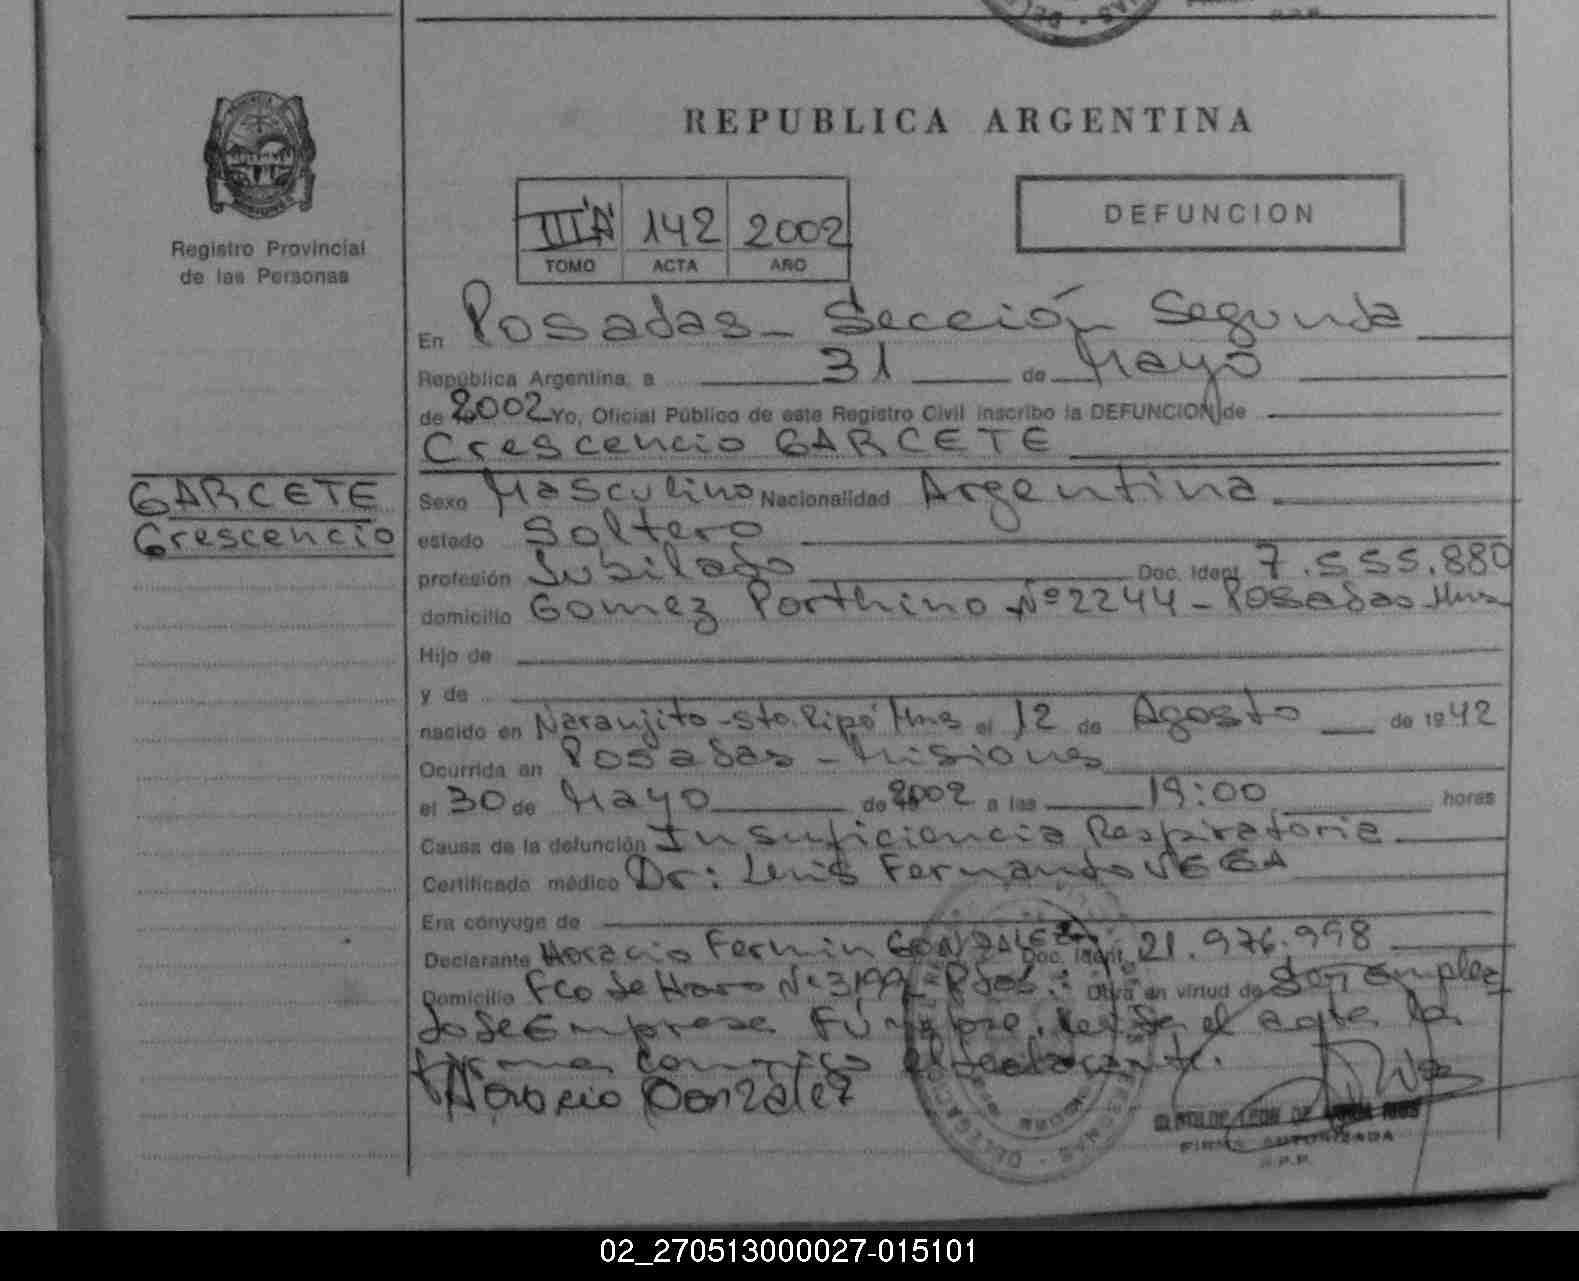 REPUBLICA ARGENTINA
Registro Provincial
de las Personas
III "A" 142 2002
TOMO ACTA AÑO
DEFUNCION
En Posadas - Sección Segunda
República Argentina, a 31 de Mayo
de 2002 Yo, Oficial Público de este Registro Civil inscribo la DEFUNCION de
Crescencio GARCETE
GARCETE
Crescencio
Sexo Masculino Nacionalidad Argentina
estado Soltero
profesión Jubilado Doc. Ident. 7.555.880
domicilio Gomez Porthino Nº 2244 - Posadas - Mns
Hijo de
y de
nacido en Naranjito - Sto. Pipó Mns el 12 de Agosto de 1942
Ocurrida en Posadas - Misiones
el 30 de Mayo de 2002 a las 19:00 horas
Causa de la defunción Insuficiencia Respiratoria
Certificado médico Dr: Luis Fernando VEGA
Era cónyuge de
Declarante Horacio Fermin GONZALEZ Doc. Ident. 21.976.998
Domicilio Fco de Haro Nº 3199 - Pdas. Obra en virtud de Ser emplea
do de Empresa Fúnebre. Leída el acta la
firma conmigo el declarante.
Horacio Gonzalez
FIRMA AUTORIZADA
R.P.P.
02_270513000027-015101